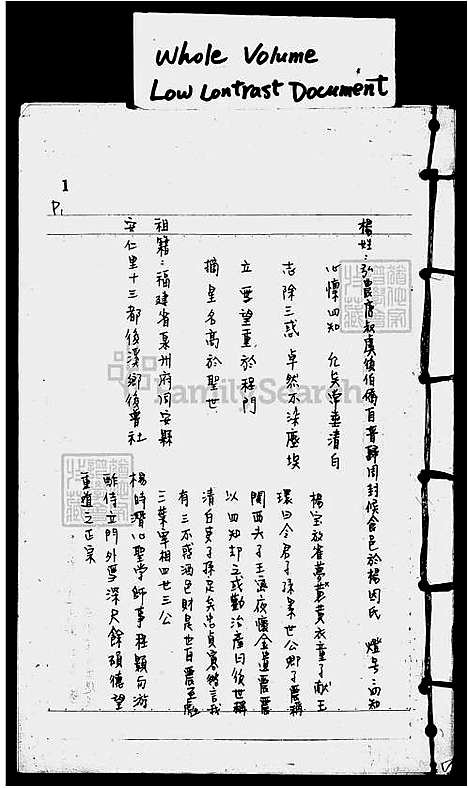 Whole Volume
Low Contrast Document
1
P1
楊姓：弘農唐叔虞後伯僑自晉歸周封候食邑於楊因氏　燈号：四知
心懷四知
志除三惑 卓然不染塵埃
立雪望重於程門
摘星名高於聖世
祖籍：福建省泉州府同安縣
安仁里十三都後溪鄉後曾社
楊宝放雀黃衣童子献玉
環曰令君子孫累世公卿
関西夫子王密夜懷金遺震
以四知却之或勸治產曰後世稱
清白吏子孫足矣
有三不惑酒色財是也自震至彪
三葉宰相四世三公
楊時潛心聖学師事程顥与游
酢侍立門外雪深尺餘碩德望
重道之正宗
FamilySearch